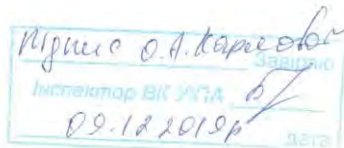 Підпис О.А. Карлової
Завіряю
Інспектор ВК УІПА
09.12.2019р дата